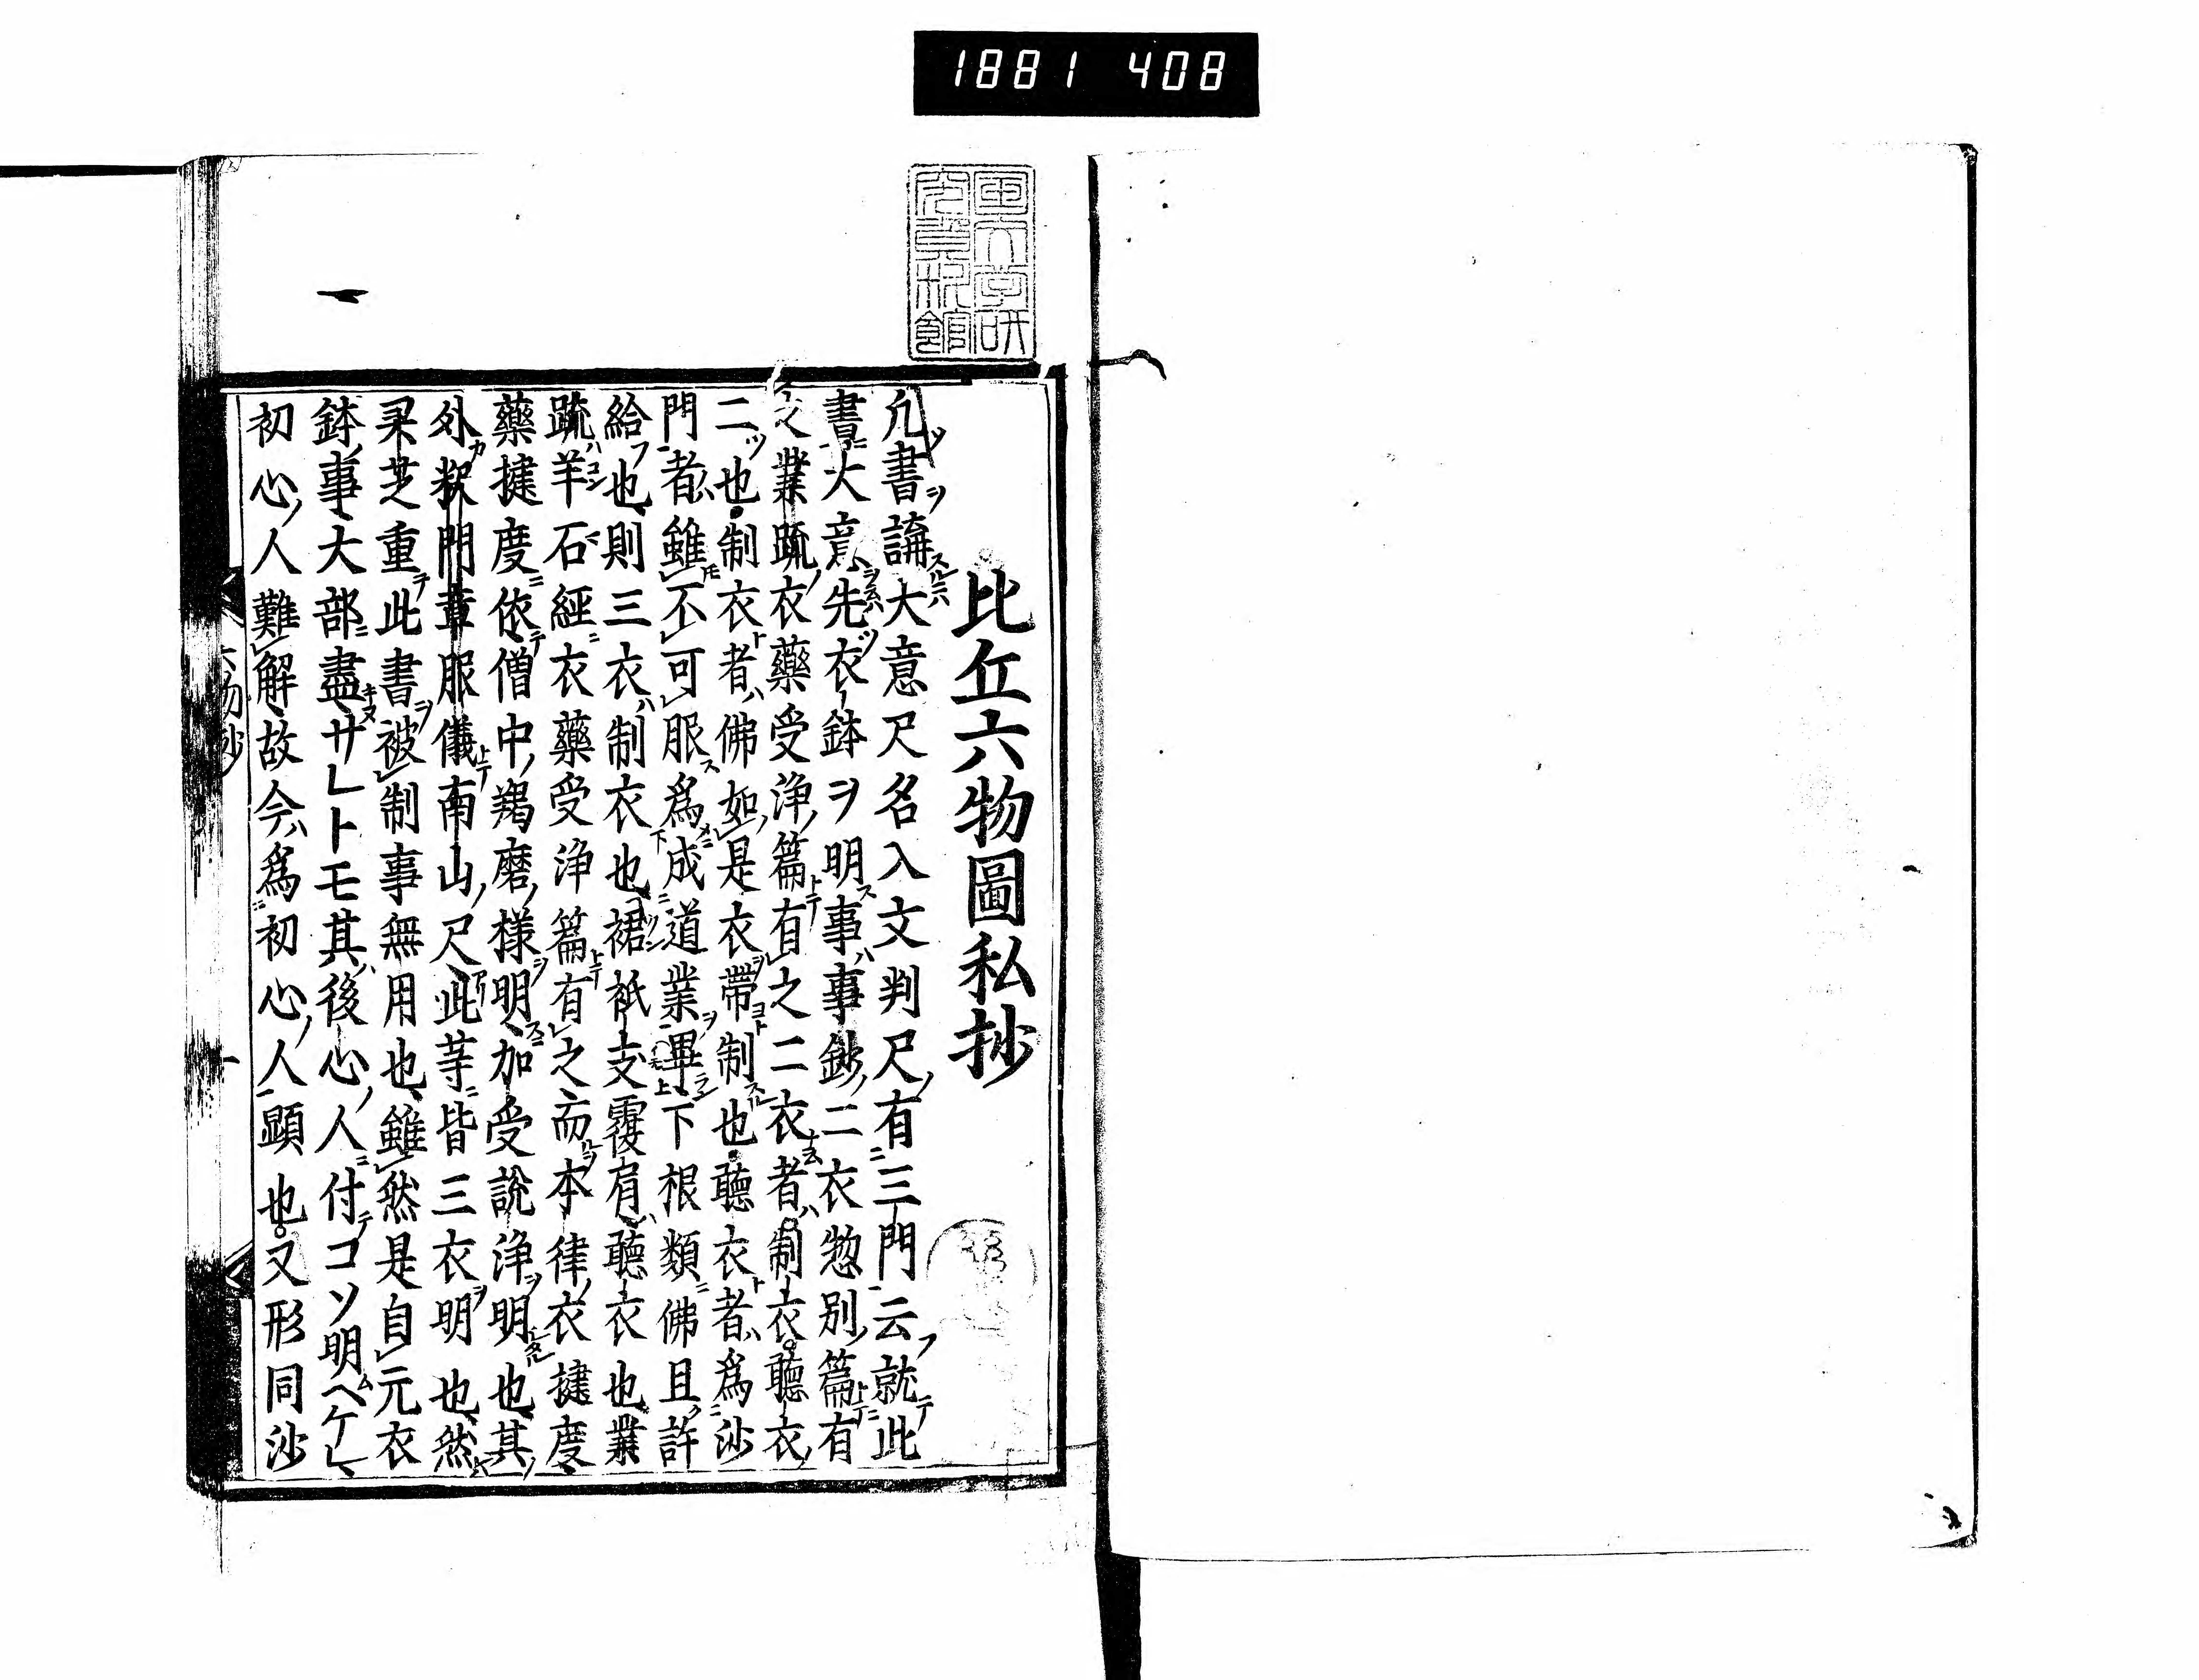 1881 408
国文学研
究資料館
比丘六物圖私抄
凡書講大意尺名入文判尺有三門云就此
書大意先衣鉢ヲ明事事鈔二衣惣別篇有
文業疏衣藥受浄篇有之二衣者制衣聽衣
二也制衣者佛如是衣帶制也聽衣者為沙
門者雖不可服為成道業畢下根類佛且許
給也則三衣制衣也裙祇支覆肩聽衣也業
疏羊石經衣藥受浄篇有之而本律衣揵度
藥揵度依僧中羯磨様明加受說浄明也其
外釈門章服儀南山尺此等皆三衣明也然
芝重此書被制事無用也雖然是自元衣
鉢事大部盡サレトモ其後心人付コソ明ヘケレ
初心人難解故今為初心人顕也又形同沙
六物抄